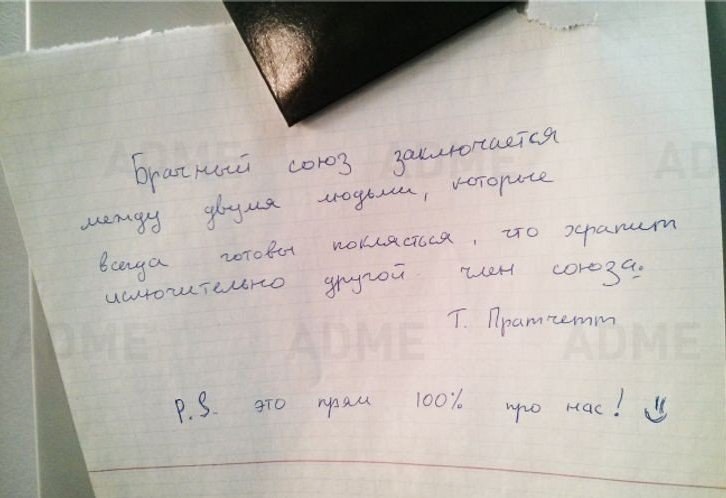 Брачный союз заключается
между двумя людьми, которые
всегда готовы поклясться, что храпит
исключительно другой член союза.
Т. Пратчетт
P.S. это прям 100% про нас!
ADME
ADME
ADME
ADME
ADME
ADME